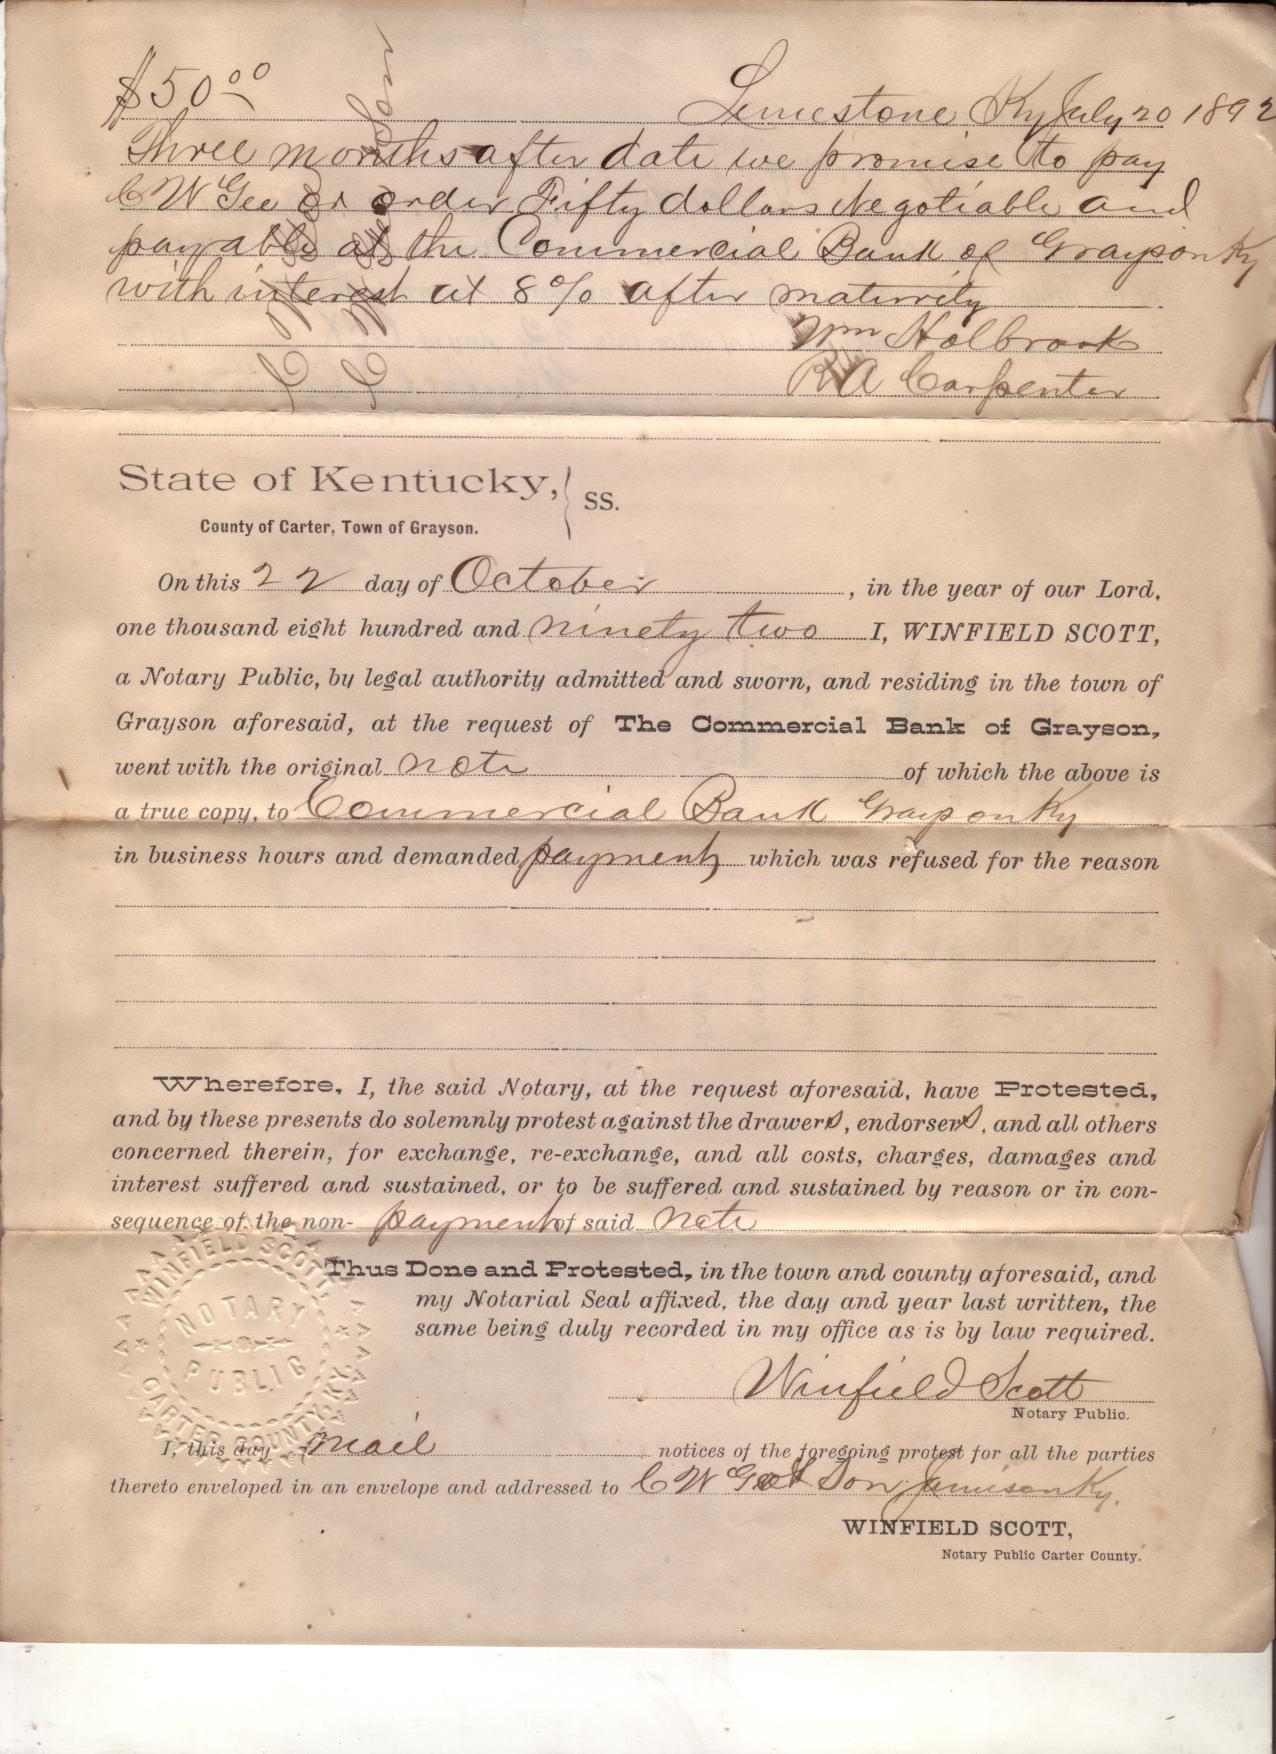 $50.00
Limestone Ky July 20 1892
Three months after date we promise to pay
C W Gee or order Fifty dollars Negotiable and
payable at the Commercial Bank of Grayson Ky
with interest at 8% after maturity
Wm Holbrook
R A Carpenter
C W Gee
C W Gee & Son
State of Kentucky, } SS.
County of Carter, Town of Grayson.
On this 22 day of October , in the year of our Lord,
one thousand eight hundred and ninety two I, WINFIELD SCOTT,
a Notary Public, by legal authority admitted and sworn, and residing in the town of
Grayson aforesaid, at the request of The Commercial Bank of Grayson,
went with the original note of which the above is
a true copy, to Commercial Bank Grayson Ky
in business hours and demanded payment which was refused for the reason
Wherefore, I, the said Notary, at the request aforesaid, have Protested,
and by these presents do solemnly protest against the drawers, endorsers, and all others
concerned therein, for exchange, re-exchange, and all costs, charges, damages and
interest suffered and sustained, or to be suffered and sustained by reason or in con-
sequence of the non- payment of said note
Thus Done and Protested, in the town and county aforesaid, and
my Notarial Seal affixed, the day and year last written, the
same being duly recorded in my office as is by law required.
WINFIELD SCOTT,
NOTARY
PUBLIC
CARTER COUNTY, KY.
Winfield Scott
Notary Public.
I, this day mail notices of the foregoing protest for all the parties
thereto enveloped in an envelope and addressed to C W Gee & Son Jamison Ky.
WINFIELD SCOTT,
Notary Public Carter County.